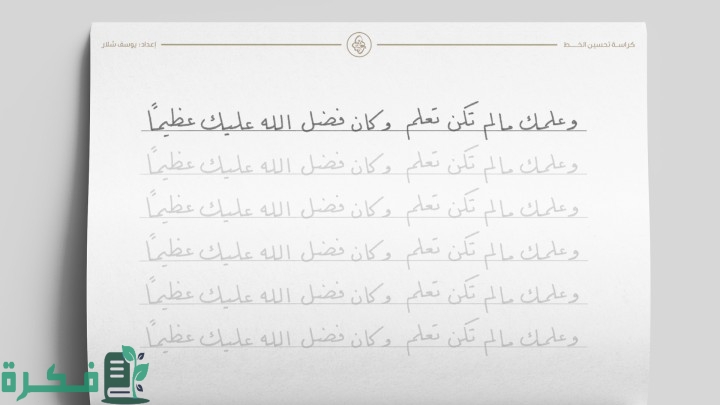 كراسة تحسين الخـــط
إعداد: يوسف شلار
وعلمك مالم تكن تعلم وكان فضل الله عليك عظيمًا
وعلمك مالم تكن تعلم وكان فضل الله عليك عظيمًا
وعلمك مالم تكن تعلم وكان فضل الله عليك عظيمًا
وعلمك مالم تكن تعلم وكان فضل الله عليك عظيمًا
وعلمك مالم تكن تعلم وكان فضل الله عليك عظيمًا
وعلمك مالم تكن تعلم وكان فضل الله عليك عظيمًا
فكرة